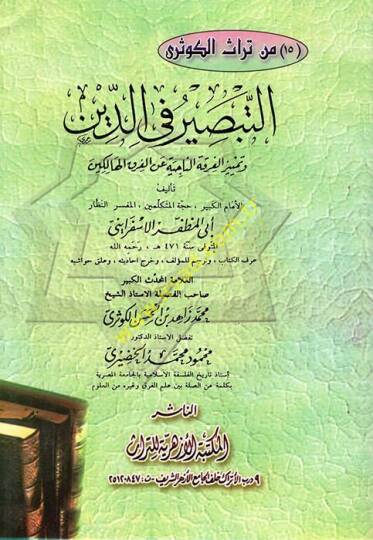 (١٥) من تراث الكوثرى
التبصير فى الدين
وتمييز الفرقة الناجية عن الفرق الهالكين
تأليف
الأمام الكبير ، حجة المتكلمين ، المفسر النظار
أبى المظفر الإسفراينى
المتوفى سنة ٤٧١ هـ ، رحمه الله
عرف الكتاب ، وترجم للمؤلف ، وخرج أحاديثه ، وعلق حواشيه
العلامة المحدث الكبير
صاحب الفضيلة الأستاذ الشيخ
محمد زاهد بن الحسن الكوثرى
تفضل الأستاذ الدكتور
محمود محمد الخضيرى
أستاذ تاريخ الفلسفة الاسلامية بالجامعة المصرية
بكلمة عن الصلة بين علم الفرق وغيره من العلوم
الناشر
المكتبة الأزهرية للتراث
٩ درب الأتراك خلف الجامع الأزهر الشريف - ت : ٢٥١٢٠٨٤٧